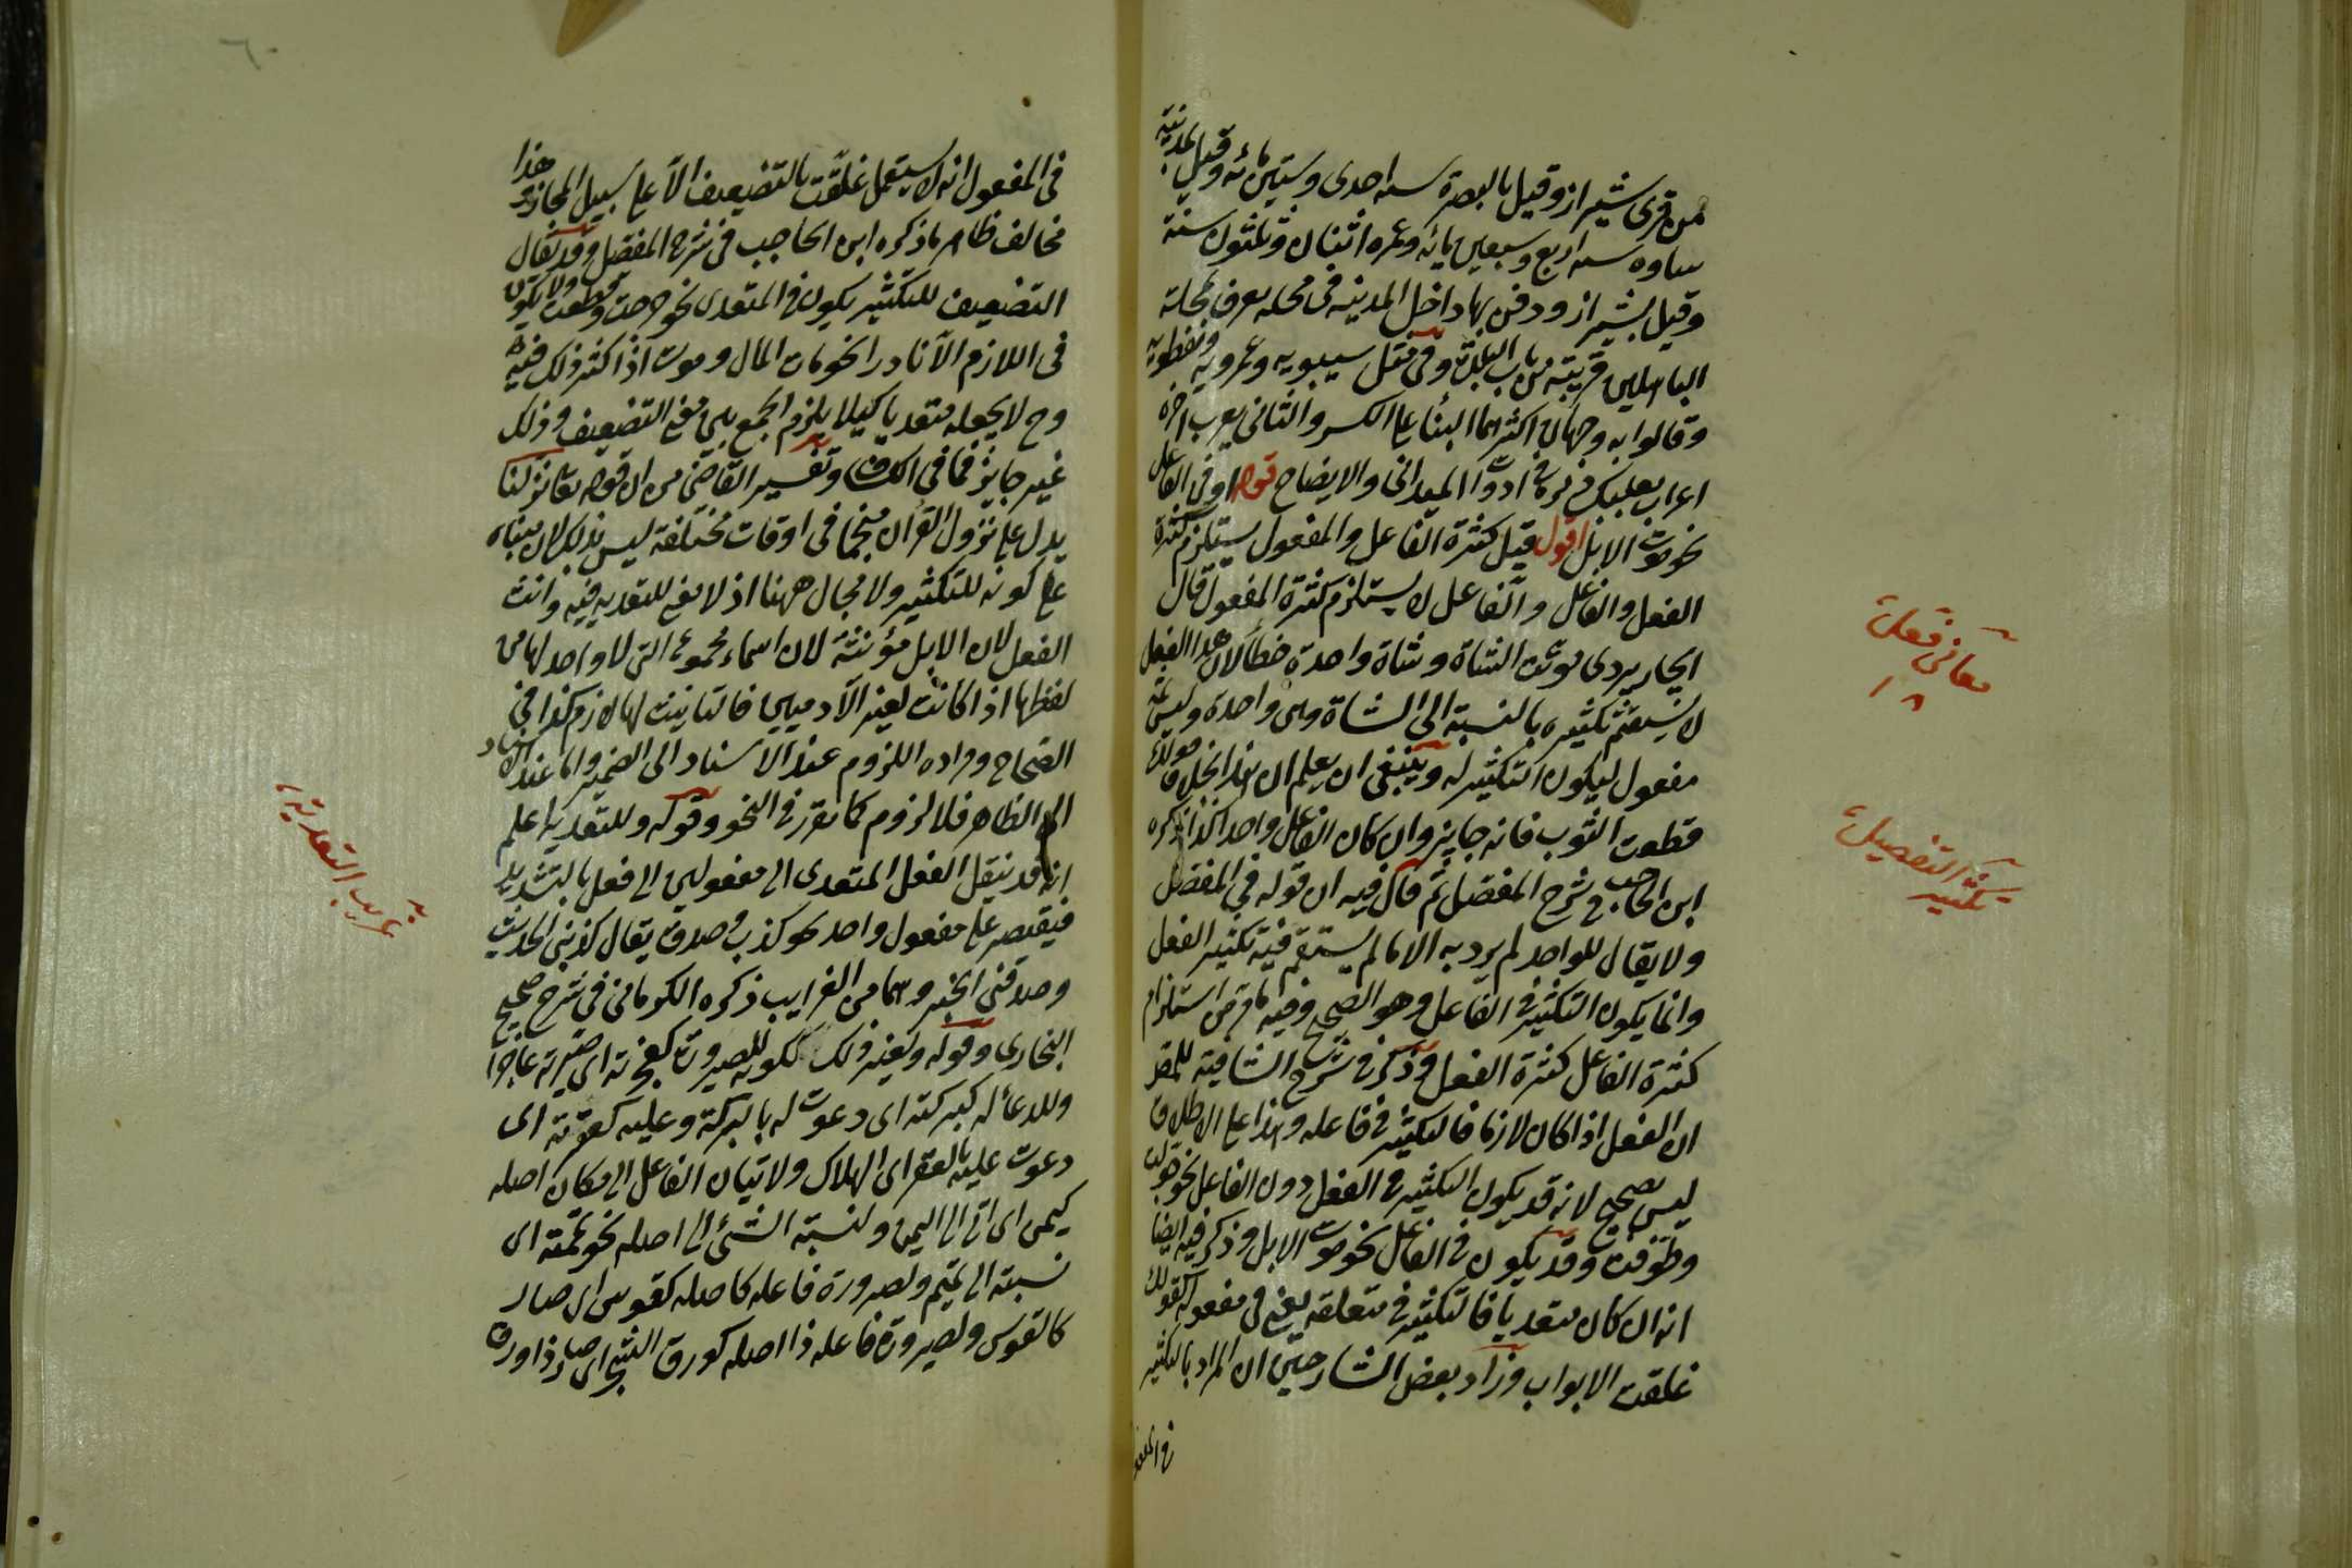 من قرى شيراز وقيل بالبصرة سنه احدى وستين مائه وقيل بمدينة
ساوه سنه اربع وسبعين مائه وعمره اثنان وثلثون سنة
وقيل بشيراز ودفن بها داخل المدينه فى محله يعرف بمحلة
الباهلين قريبته من باب البلد وفى مثل سيبويه وعمرويه ونفطويه
وقالوا به وجهان اكثرهما البناء على الكسر والثانى يعرب اخره
اعراب بعلبك والايضاح قوله او فى الفاعل
نحو موت الابل اقول قيل كثرة الفاعل والمفعول يستلزم كثرة
الفعل والفاعل والفاعل لا يستلزم كثرة المفعول قال
الجاربردى موتت الشاة وشاة واحدة خطأ لان هذا الفعل
لا يستقيم تكثيره بالنسبة الى الشاة وهى واحدة وليس ثمه
مفعول ليكون التكثير له وينبغى ان يعلم ان هذا بخلاف قولك
قطعت الثوب فانه جايز وان كان الفاعل واحدا كذا ذكره
ابن الحاجب فى شرح المفصل ثم قال فيه ان قوله فى المفصل
ولا يقال للواحد لم يرد به الا ما لم يستقم فيه تكثير الفعل
وانما يكون التكثير فى الفاعل وهو الصحيح وفيه ما مر من استلزام
كثرة الفاعل كثرة الفعل وذكر فى شرح الشافية للمص
ان الفعل اذا كان لازما فالتكثير فى فاعله وهذا على الاطلاق
ليس بصحيح لانه قد يكون التكثير فى الفعل دون الفاعل نحو جولت
وطوفت وقد يكون فى الفاعل نحو موت الابل وذكر فيه ايضا
انه ان كان متعديا فالتكثير فى متعلقه يعنى فى مفعوله كقولك
غلقت الابواب وزاد بعض الشارحين ان المراد بالتكثير
فى المفعو
معانى فعلت
١٨
تكثير التفصيل
٦٠
فى المفعول انه لا يستعمل غلقت بالتضعيف الا على سبيل المجاز وهذا
مخالف ظاهر ما ذكره ابن الحاجب فى شرح المفصل وقد يقال
التضعيف للتكثير يكون فى المتعدى نحو جرحت وقطعت ولا يكون
فى اللازم الا نادرا نحو مات المال وموت اذا كثر ذلك فيه
وح لا يجعله متعديا كيلا يلزم الجمع بين معنى التضعيف وذلك
غير جايز فما فى الكشاف وتفسير القاضى من ان قوله تعا نزلنا
يدل على نزول القرآن منجما فى اوقات مختلفة ليس بذلك لان مبناه
على كونه للتكثير ولا مجال ههنا اذ لا معنى للتعديه فيه وانث
الفعل لان الابل مؤنثة لان اسماء مجموع التى لا واحد لها من
لفظها اذا كانت لغير الآدميين فالتانيث لها لازم كذا فى
الصحاح ومراده اللزوم عند الاسناد الى الضمير واما عند الاسناد
الى الظاهر فلا لزوم كما تقرر فى النحو وقوله وللتعدية اعلم
انه قد ينقل الفعل المتعدى الى مفعولين الى فعل بالتشديد
فيقتصر على مفعول واحد نحو كذب وصدق يقال كذبنى الحديث
وصدقنى الخبر وهما من الغرايب ذكره الكرمانى فى شرح صحيح
البخارى وقوله ولغير ذلك ككونه للصيرورة كعجزته اى صيرته عاجزا
وللدعاء له كبركته اى دعوت له بالبركة وعليه كعقرته اى
دعوت عليه بالعقر اى الهلاك ولاتيان الفاعل الى مكان اصله
كيمن اى اتى الى اليمن ولنسبة الشئ الى اصله نحو تممته اى
نسبته الى تميم ولصيرورة فاعله كاصله كقوس اى صار
كالقوس ولصيرورة فاعله ذا اصله كورق الشجر اى صار ذا ورق
غريب التعدية